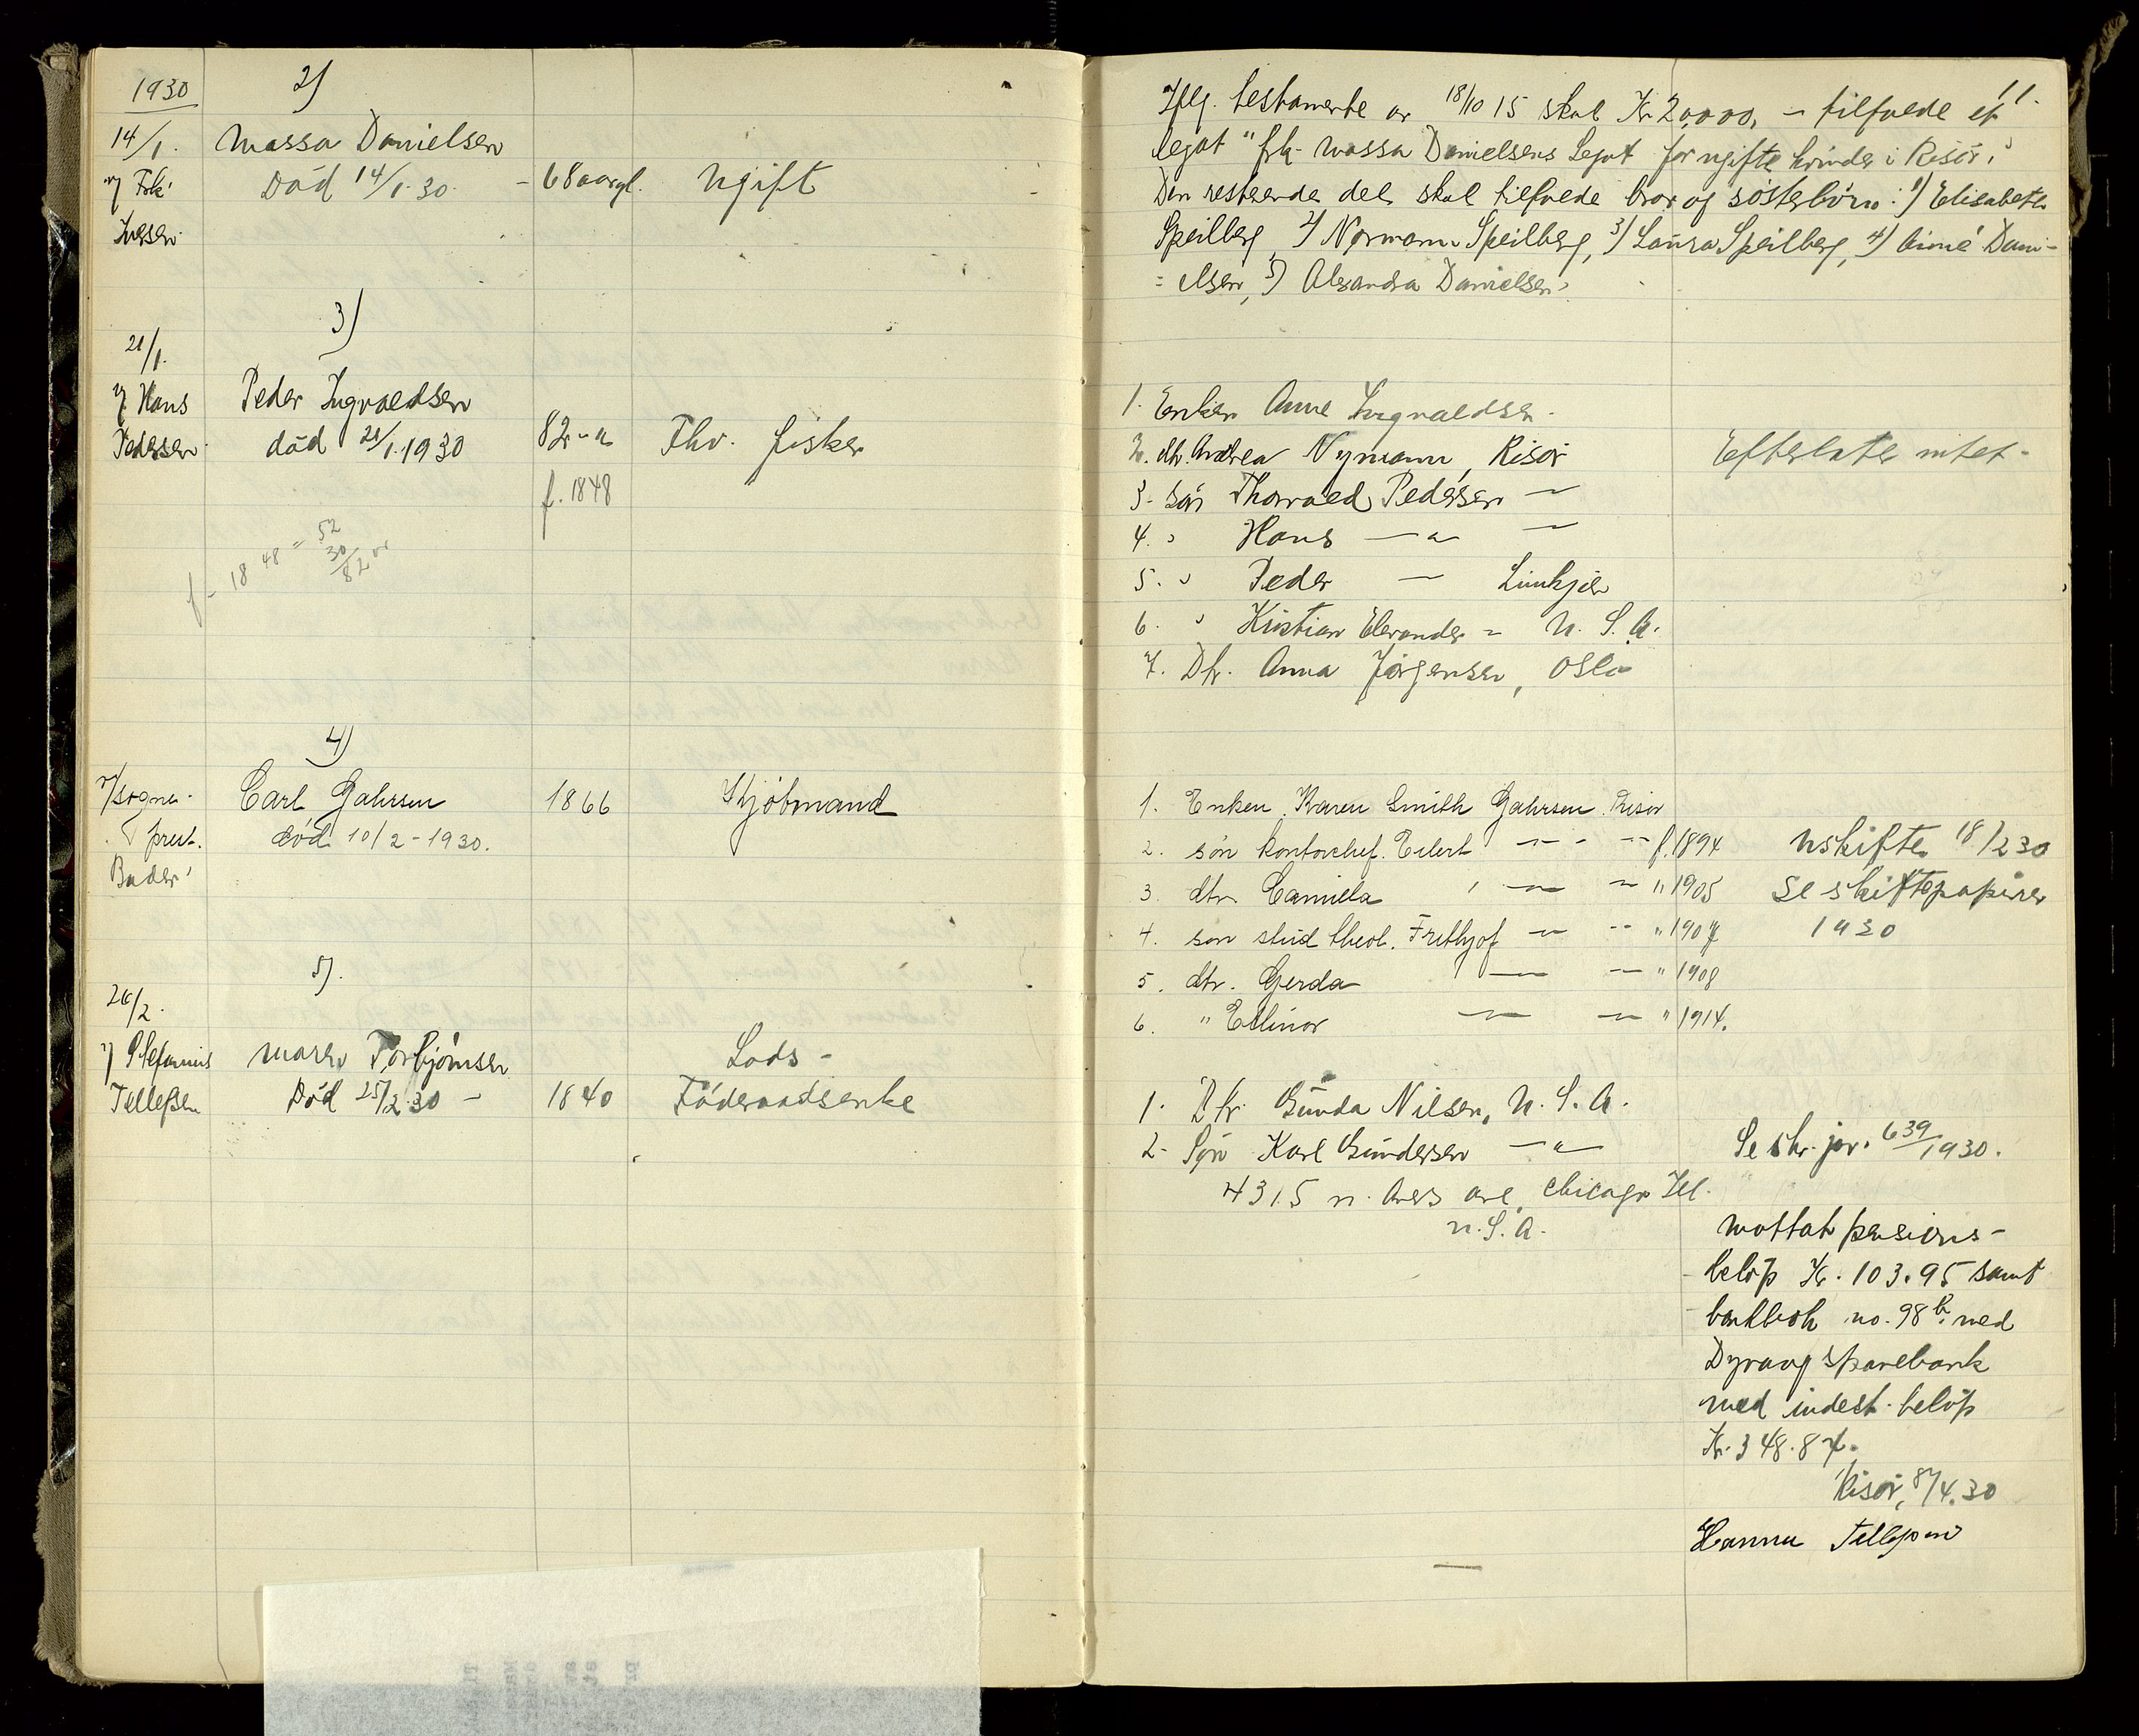 1930
2)
14/1.
Massa Danielsen
v/ Frk.
Død 14/1-30.
- 68 aar gl.
Ugift
Iversen
3)
21/1.
v/ Hans
Peder Ingvaldsen
Pedersen
død 21/1.1930
82 - a
Fhv. fisker
f. 1848
f - 1848 = 52
30
82 år
4)
v/sogne-
Carl Gahrsen
1866
Kjøbmand
prest.
død 10/2-1930.
Bader
5).
26/2.
v/ Stefanius
Maren Torbjörnsen
Lods -
Tellefsen
Död 25/2.30 -
1840
Föderaadsenke
11.
Iflg. testamente av 18/10 15 skal Kr 20,000, - tilfalde et
legat "frk. Massa Danielsens Legat for ugifte kvinder i Risör."
Den resterende del skal tilfalde bror og söstebörn: 1) Elisabeth
Speilberg, 2) Normann Speilberg, 3) Laura Speilberg, 4) Aimé Dani-
= elsen, 5) Alexandra Danielsen.
1. Enken Anne Ingvaldsen.
2. dtr. Andrea Nymann, Risör
Efterlater intet -
3. Søn Thorvald Pedersen —
4. " Hans — " —
5. " Peder —
6. " Kristian Elexander = U. S. A.
7. Dtr. Anna Jörgensen, Oslo
1. Enken Karen Smith Gahrsen Risör
2. søn kontorchef. Eilert — " — f. 1894
Uskifte 18/2 30
3 dtr. Camilla " — " 1905
Se skiftepapirer
4. søn stud. theol. Frithjof — " — " 1907
1930
5. dtr. Gerda — — " 1908
6. " Ellinor — — " 1914.
1. Dtr. Gunda Nilsen, U. S. A.
2. Søn Karl Gundersen — " —
Se skr. jor. 639/1930.
4315 n. Avers ave, Chicago Ill.
U. S. A.
Mottat pensions-
beløp Kr. 103.95 samt
bankbok no. 98 b. med
Dyvaag Sparebank
med indest. beløp
Kr. 348.87.
Risør, 8/4.30
Hanna Tellefsen